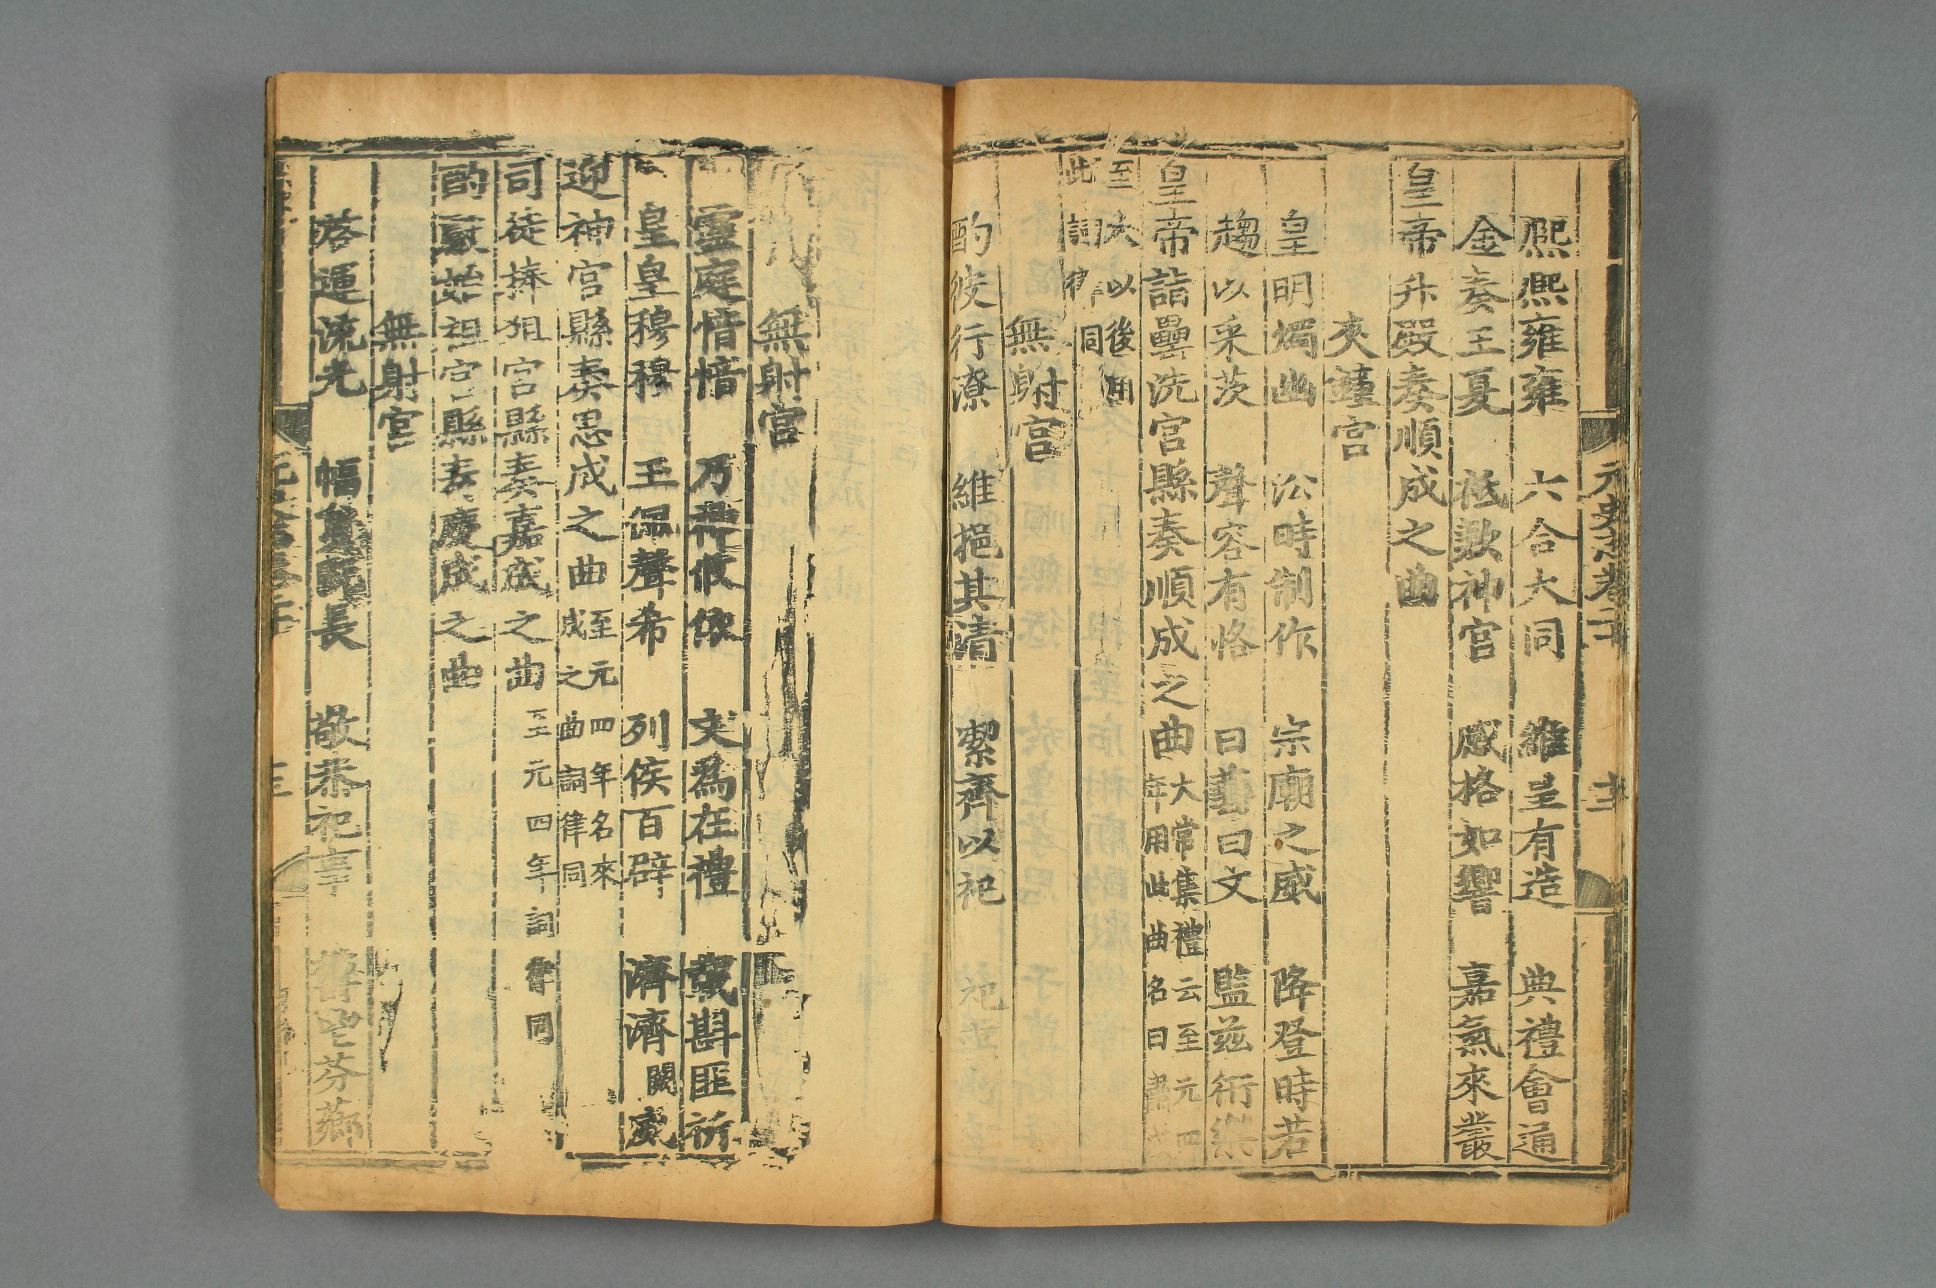 元史志卷二十
十二
熙熙雍雍 六合大同 維皇有造 典禮會通
金奏王夏 祗款神宮 感格如響 嘉氣來叢
皇帝升殿奏順成之曲
夾鍾宮
皇明燭幽 沿時制作 宗廟之威 降登時若
趨以采茨 聲容有恪 曰藝曰文 監茲衎樂
皇帝詣罍洗宮縣奏順成之曲
大常集禮云至元四
年用此曲名曰肅成
至大以後用
此詞律同
無射宮
酌彼行潦 維挹其清 潔齊以祀 祀
無射宮
靈庭愔愔 乃神攸依 文為在禮 載斟匪祈
皇皇穆穆 玉佩聲希 列侯百辟 濟濟闕威
迎神宮縣奏思成之曲
至元四年名來
成之曲詞律同
司徒捧俎宮縣奏嘉成之曲
至元四年詞律同
酌獻始祖宮縣奏慶成之曲
無射宮
啓運流光 幅員既長 敬恭祀事 鬱鬯芬薌